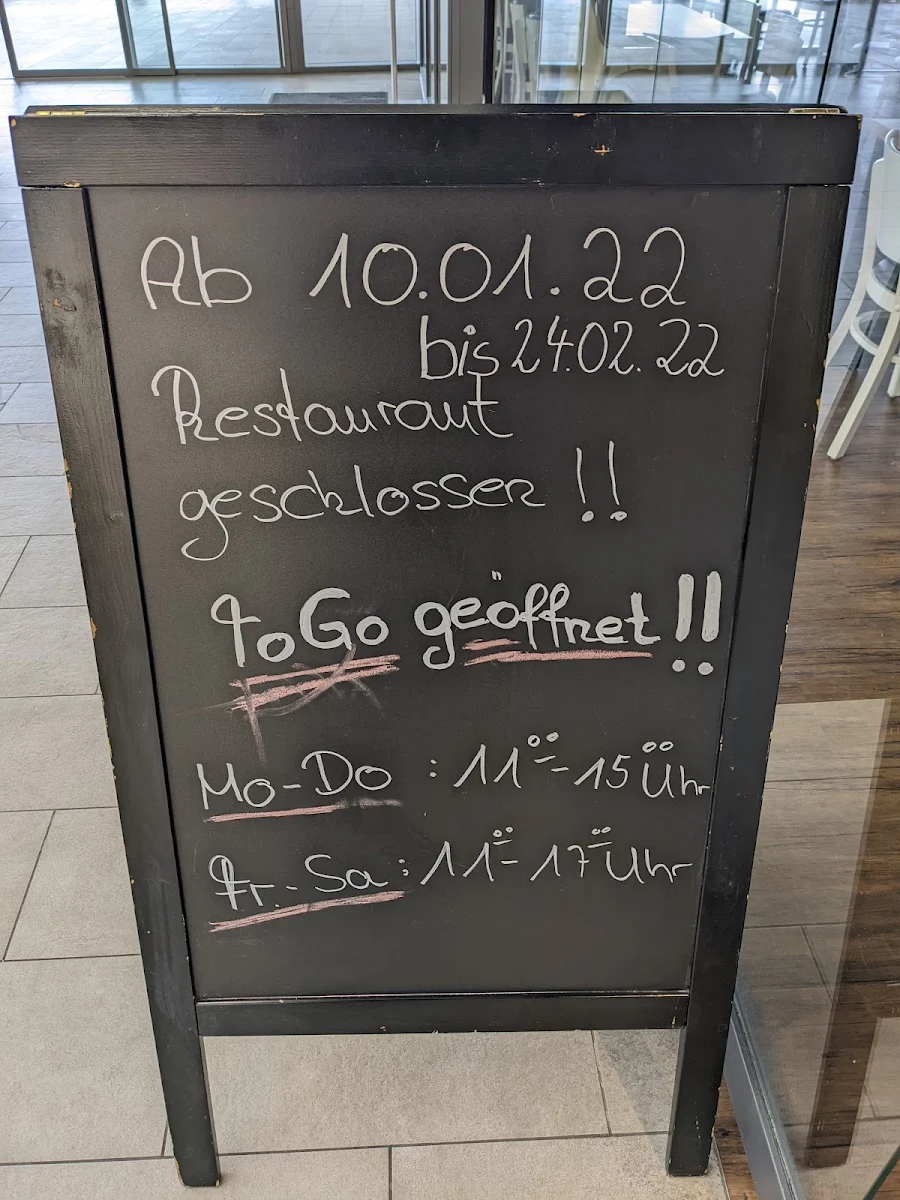 Ab 10.01.22
bis 24.02.22
Restaurant
geschlossen !!
ToGo geöffnet!!
Mo-Do : 11⁰⁰-15⁰⁰ Uhr
Fr.-Sa : 11⁰⁰-17⁰⁰ Uhr